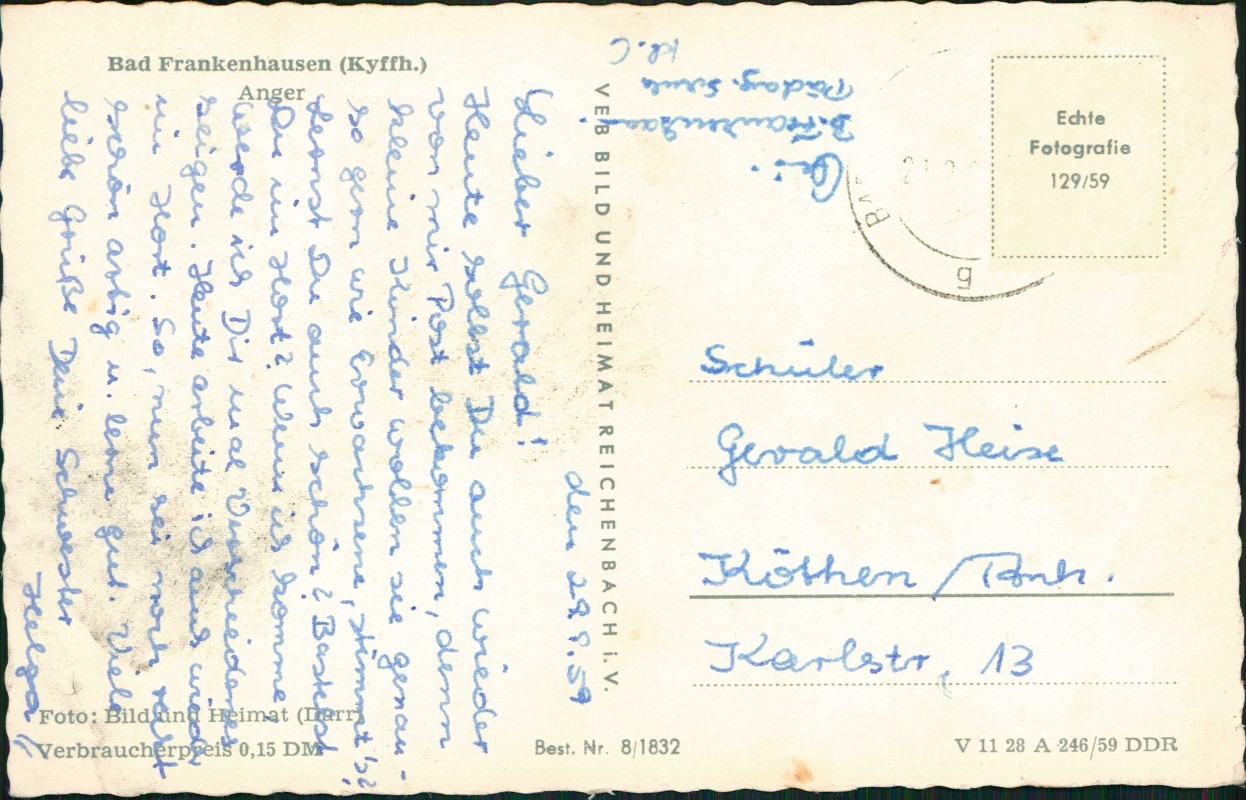 Bad Frankenhausen (Kyffh.)
Anger
den 29.9.59
Lieber Gerald!
Heute sollst Du auch wieder
von mir Post bekommen, denn
kleine Kinder wollen sie genau-
so gern wie Erwachsene, stimmt's?
Lernst Du auch schön? Bastelst
Du im Hort? Wenn ich komme,
werde ich Dir mal Verschiedenes
zeigen. Heute arbeite ich auch wieder
im Hort. So, nun sei noch recht
schön artig u. lerne gut. Viele
liebe Grüße Deine Schwester
Helga!
Foto: Bild und Heimat (Darr)
Verbraucherpreis 0,15 DM
Best. Nr. 8/1832
VEB BILD UND HEIMAT REICHENBACH i. V.
B. Frankenhausen
Pädag. Schule
Kl. C
Echte
Fotografie
129/59
Schüler
Gerald Heise
Köthen / Anh.
Karlstr. 13
V 11 28 A 246/59 DDR